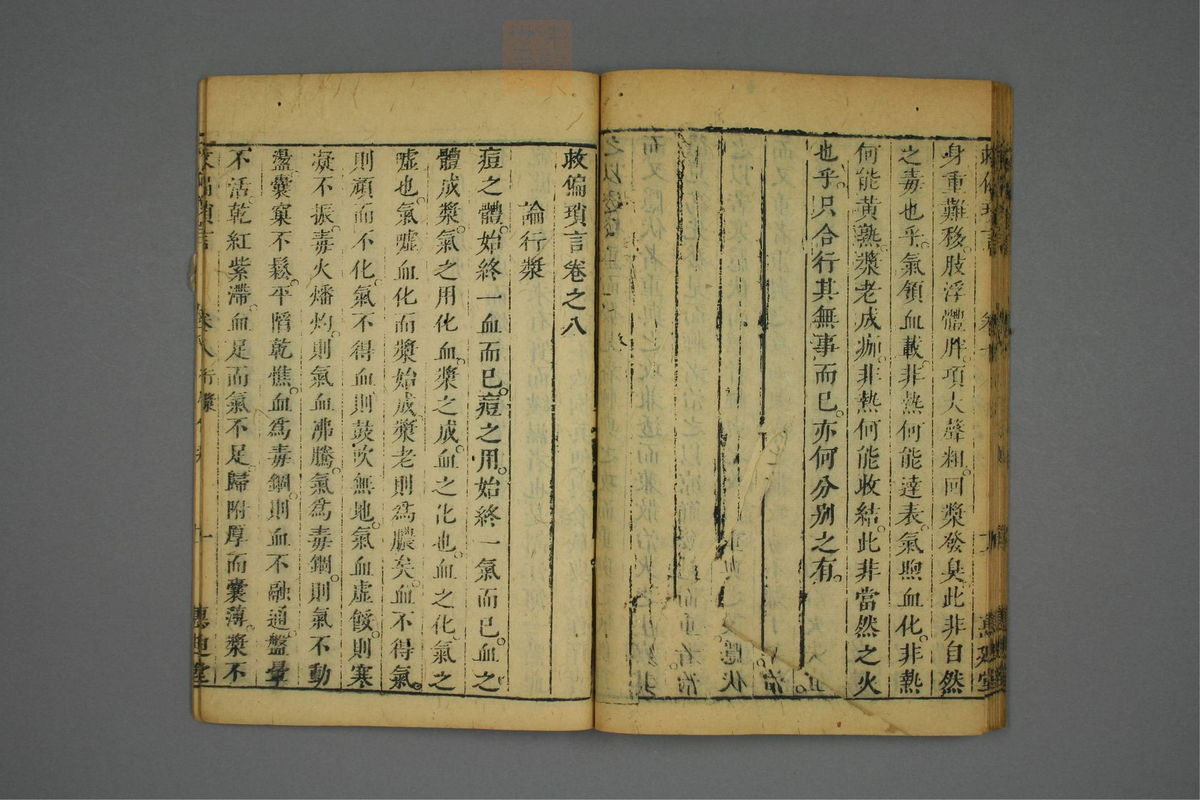 身重難移肢浮體胖項大聲粗回漿發臭此非自然
之毒也乎氣領血載非熱何能達表氣煦血化非熱
何能黃熟漿老成痂非熱何能收結此非當然之火
也乎只合行其無事而已亦何分別之有
救偏瑣言卷之八
論行漿
痘之體始終一血而已痘之用始終一氣而已血之
體成漿氣之用化血漿之成血之化也血之化氣之
噓也氣噓血化而漿始成漿老則爲膿矣血不得氣
則頑而不化氣不得血則鼓吹無地氣血虛餒則寒
凝不振毒火燔灼則氣血沸騰氣爲毒錮則氣不動
盪囊窠不鬆平䧟乾憔血爲毒錮則血不融通盤暈
不活乾紅紫滯血足而氣不足歸附厚而囊薄漿不
卷八 行漿
惠迪堂